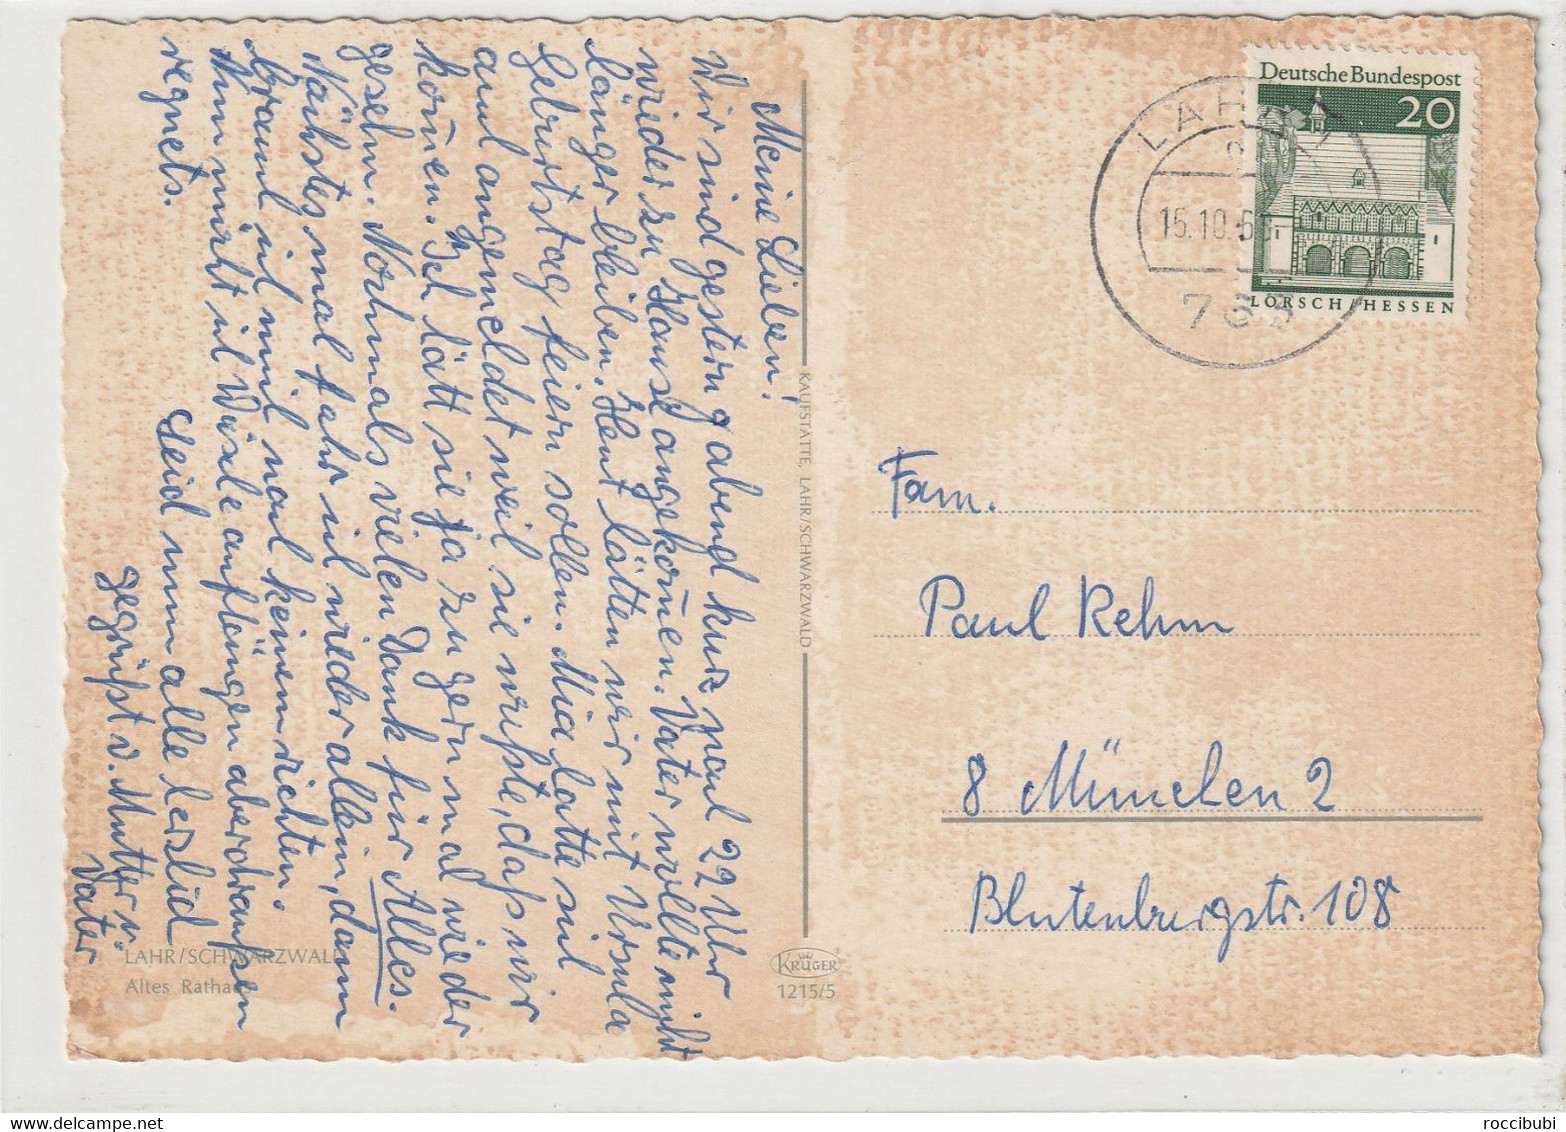 Meine Lieben!
Wir sind gestern abend kurz nach 22 Uhr
wieder zu Hause angekom̄en. Vater wollte nicht
länger bleiben. Heut hätten wir mit Ursula
Geburtstag feiern sollen. Mia hatte sich
auch angemeldet weil sie wußte, daß wir
kom̄en. Ich hätt sie ja zu gern mal wieder
gesehn. Nochmals vielen Dank für Alles.
Nächstes mal fahr ich wieder allein, dann
brauch ich mich nach keinem richten.
nun nicht ich Wäsche aufhängen aber draußen
regnets.
Seid nun alle herzlich
gegrüßt v. Mutter u.
Vater
LAHR/SCHWARZWALD
Altes Rathaus
KAUFSTÄTTE, LAHR/SCHWARZWALD
KRÜGER
1215/5
Deutsche Bundespost
20
LORSCH/HESSEN
LAHR
15.10.6
763
Fam.
Paul Rehm
8 München 2
Blutenburgstr. 108
roccibubi